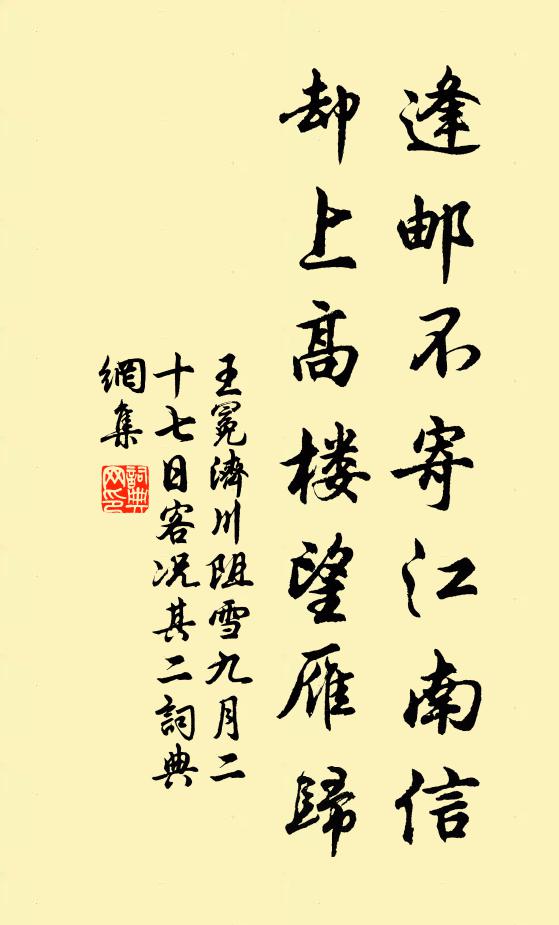 逢邮不寄江南信
却上高楼望雁歸
王冕濟川阻雪九月二
十七日客况其二詞典
網集
詞典
网印